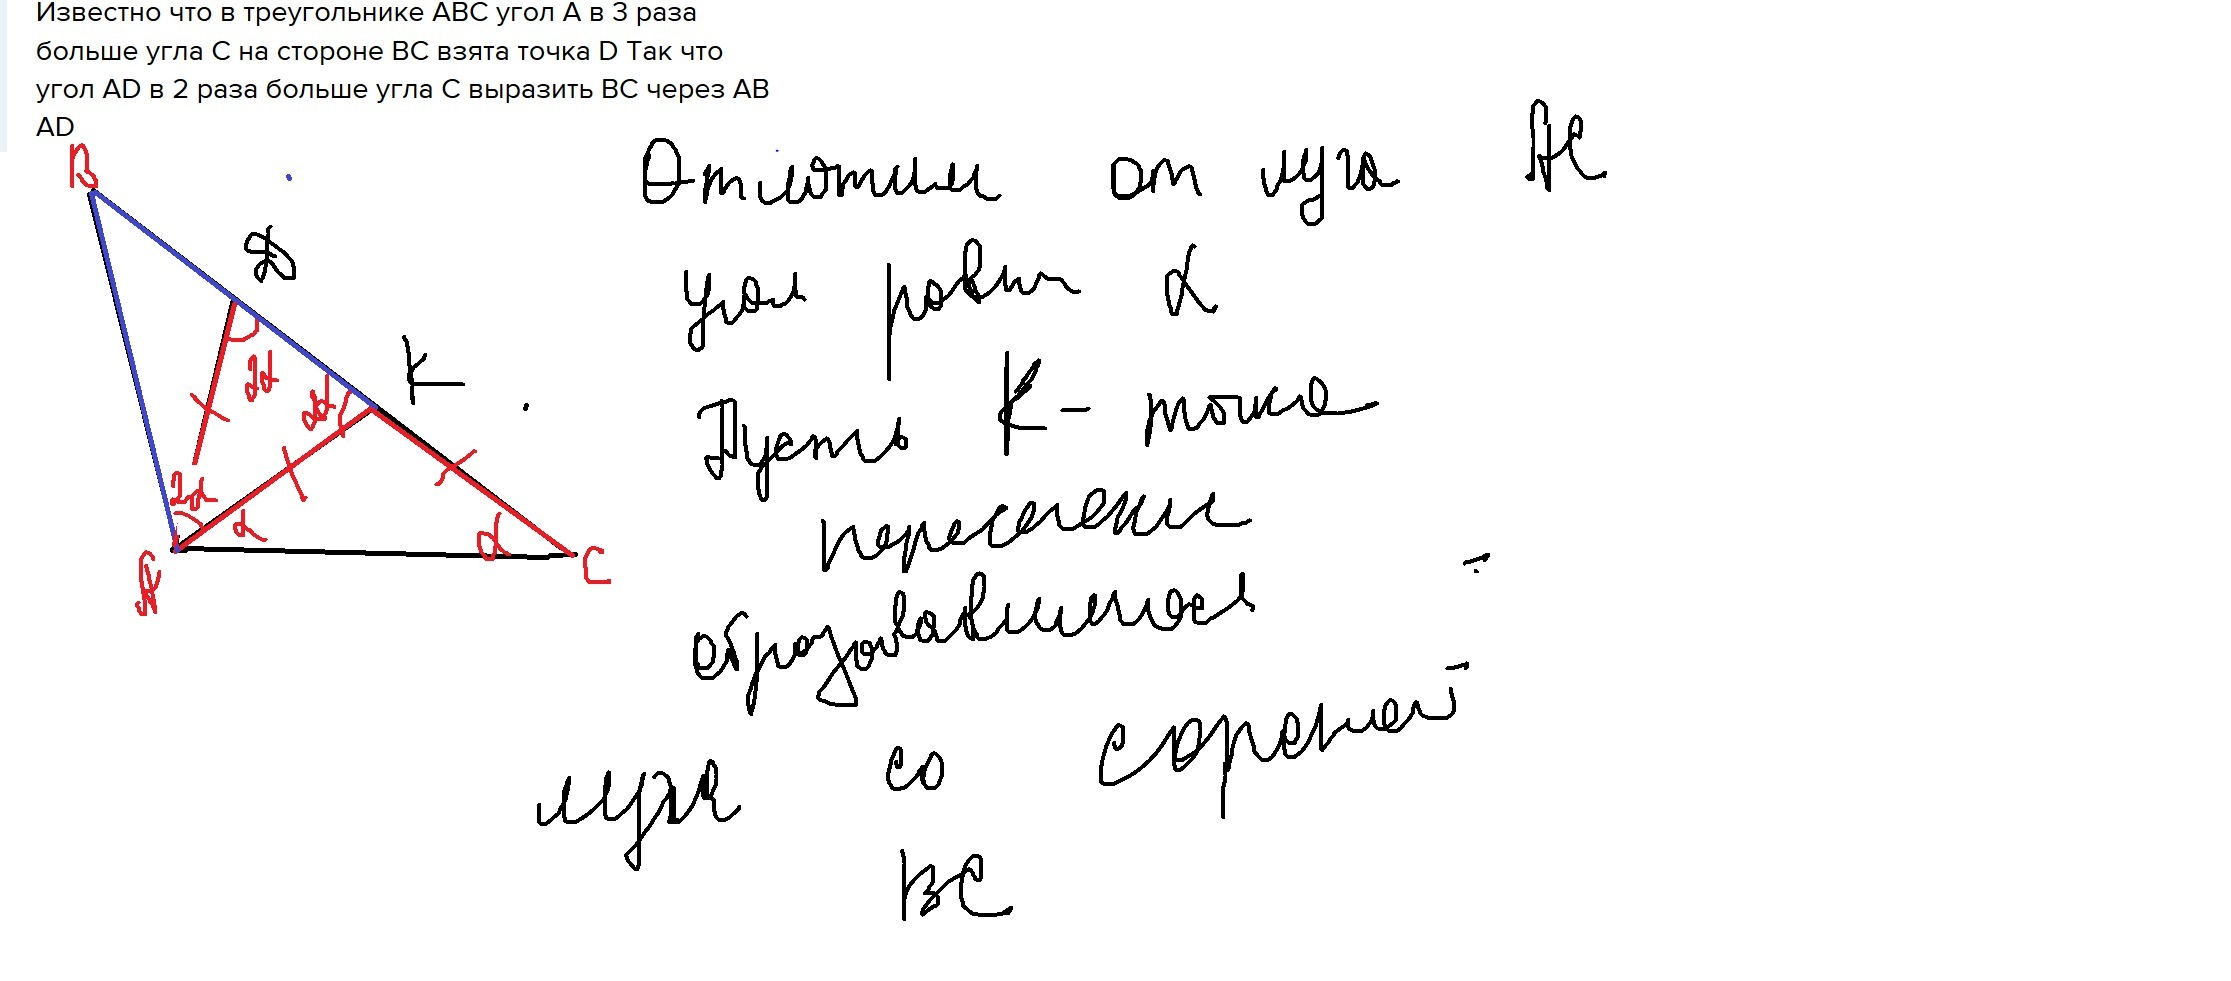 Известно что в треугольнике ABC угол A в 3 раза
больше угла C на стороне BC взята точка D Так что
угол AD в 2 раза больше угла C выразить BC через AB
AD
B
D
2α
K
2α
2α
α
α
A
C
Отложим от луга AC
угол равен α
Пусть K - точка
пересечения
образовавшегося
луга со сороной
BC